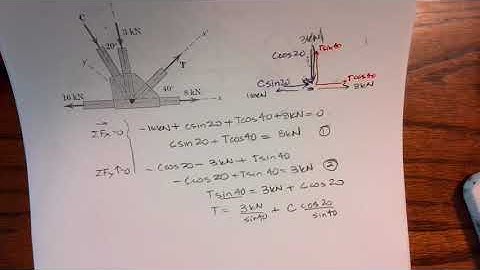 C
3 kN
20°
y
y'
x'
T
40°
16 kN
8 kN
x
3kN
Ccos20
Tsin40
Csin20
Tcos40
16kN
8kN
ΣFx→=0
-16kN + Csin20 + Tcos40 + 8kN = 0
Csin20 + Tcos40 = 8kN ①
ΣFy↑=0
-Ccos20 - 3kN + Tsin40
-Ccos20 + Tsin40 = 3kN ②
Tsin40 = 3kN + Ccos20
T = 3kN/sin40 + C cos20/sin40